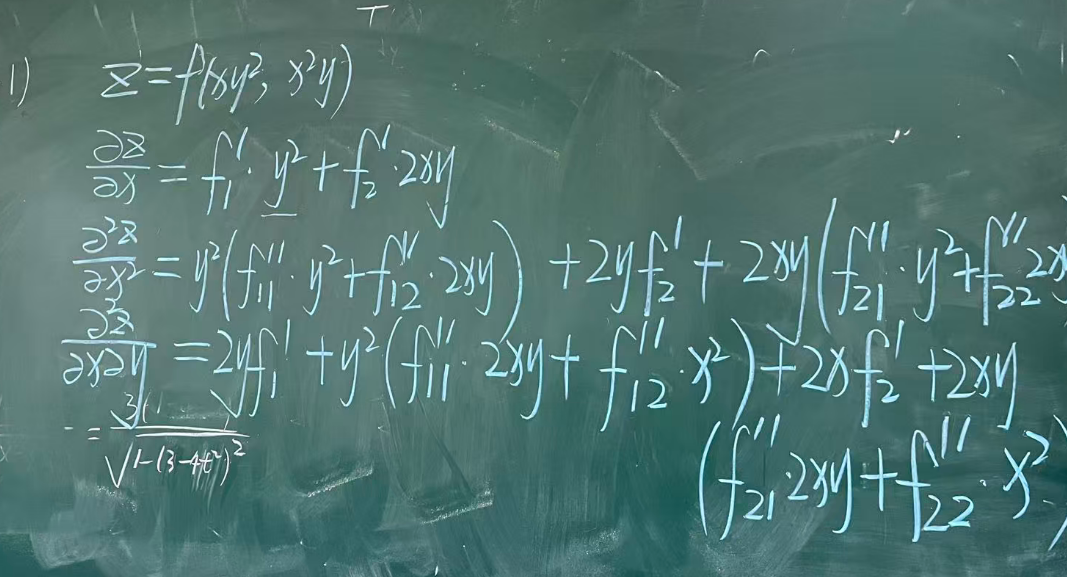 1) z=f(xy², x²y)
∂z/∂x = f₁′· y² + f₂′· 2xy
∂²z/∂x² = y²(f₁₁″· y² + f₁₂″· 2xy) + 2yf₂′ + 2xy(f₂₁″· y² + f₂₂″ 2x
∂²z/∂x∂y = 2yf₁′ + y²(f₁₁″· 2xy + f₁₂″· x²) + 2xf₂′ + 2xy
(f₂₁″· 2xy + f₂₂″· x²)
√1-(3-4t²)²